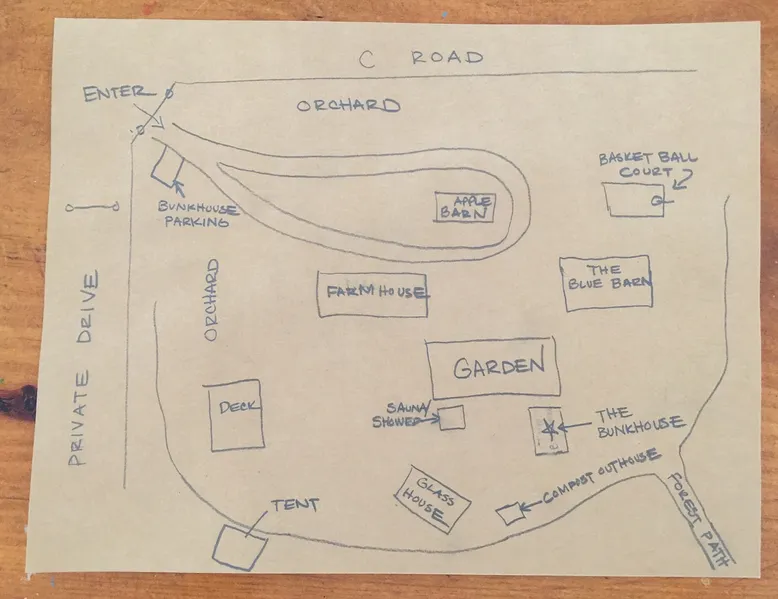 C ROAD
ENTER
ORCHARD
BASKET BALL
COURT
BUNKHOUSE
PARKING
APPLE
BARN
ORCHARD
FARM HOUSE
THE
BLUE BARN
PRIVATE DRIVE
GARDEN
DECK
SAUNA/
SHOWER
THE
BUNKHOUSE
GLASS
HOUSE
COMPOST OUTHOUSE
FOREST PATH
TENT